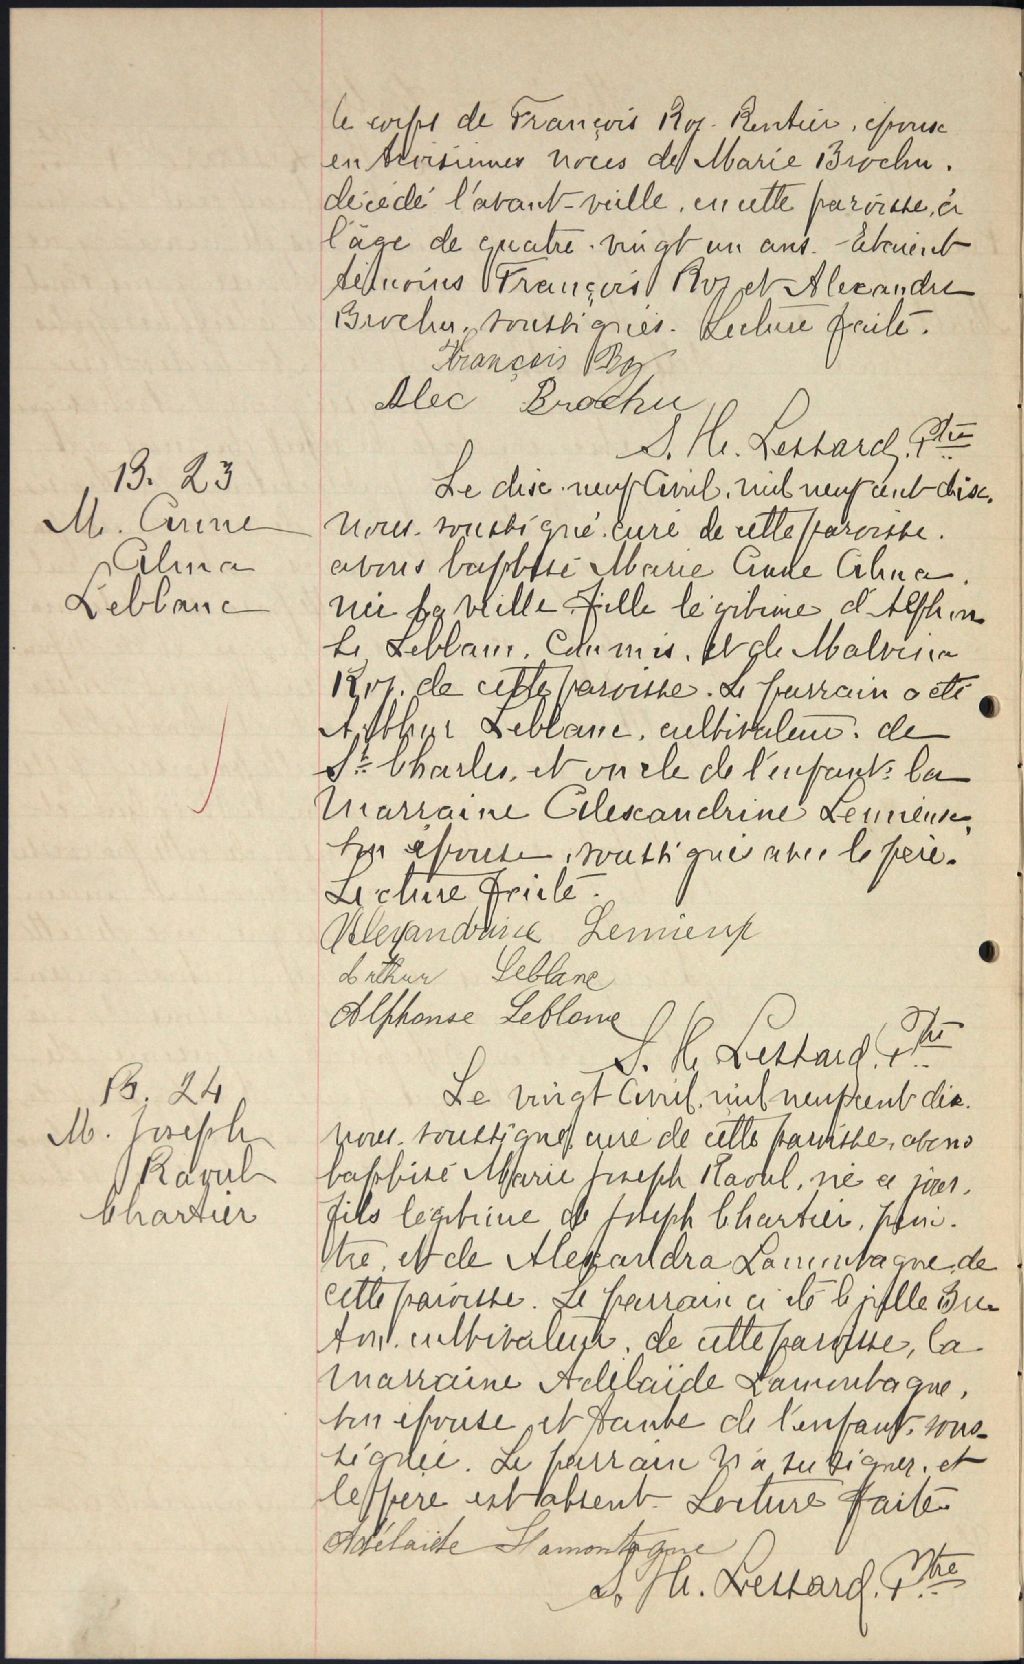 le corps de François Roy. Rentier, époux
en troisièmes noces de Marie Brochu.
décédé l'avant-veille, en cette paroisse, à
l'âge de quatre-vingt un ans. Etaient
témoins François Roy et Alexandre
Brochu, soussignés. Lecture faite.
François Roy
Alec Brochu
S. H. Lessard, Ptre
B. 23
M. Anne
Alma
Leblanc
Le dix-neuf Avril, mil neuf cent dix,
nous, soussigné, curé de cette paroisse,
avons baptisé Marie Anne Alma,
née la veille, fille légitime d'Alphon
se Leblanc, Commis, et de Malvina
Roy, de cette paroisse. Le parrain a été
Arthur Leblanc, cultivateur, de
St. Charles, et oncle de l'enfant: la
marraine Alexandrine Lemieux,
son épouse, soussignés avec le père.
Lecture faite.
Alexandrine Lemieux
Arthur Leblanc
Alphonse Leblanc
S. H. Lessard, Ptre
B. 24
M. Joseph
Raoul
Chartier
Le vingt Avril, mil neuf cent dix.
nous, soussigné, curé de cette paroisse, avons
baptisé Marie Joseph Raoul, né ce jour,
fils légitime de Joseph Chartier, pein-
tre, et de Alexandra Lamontagne, de
cette paroisse. Le parrain a été Bre-
ton, cultivateur, de cette paroisse, la
marraine Adélaïde Lamontagne,
son épouse et tante de l'enfant, sous-
signée. Le parrain n'a su signer, et
le père est absent. Lecture faite.
Adélaide Lamontagne
S. H. Lessard, Ptre